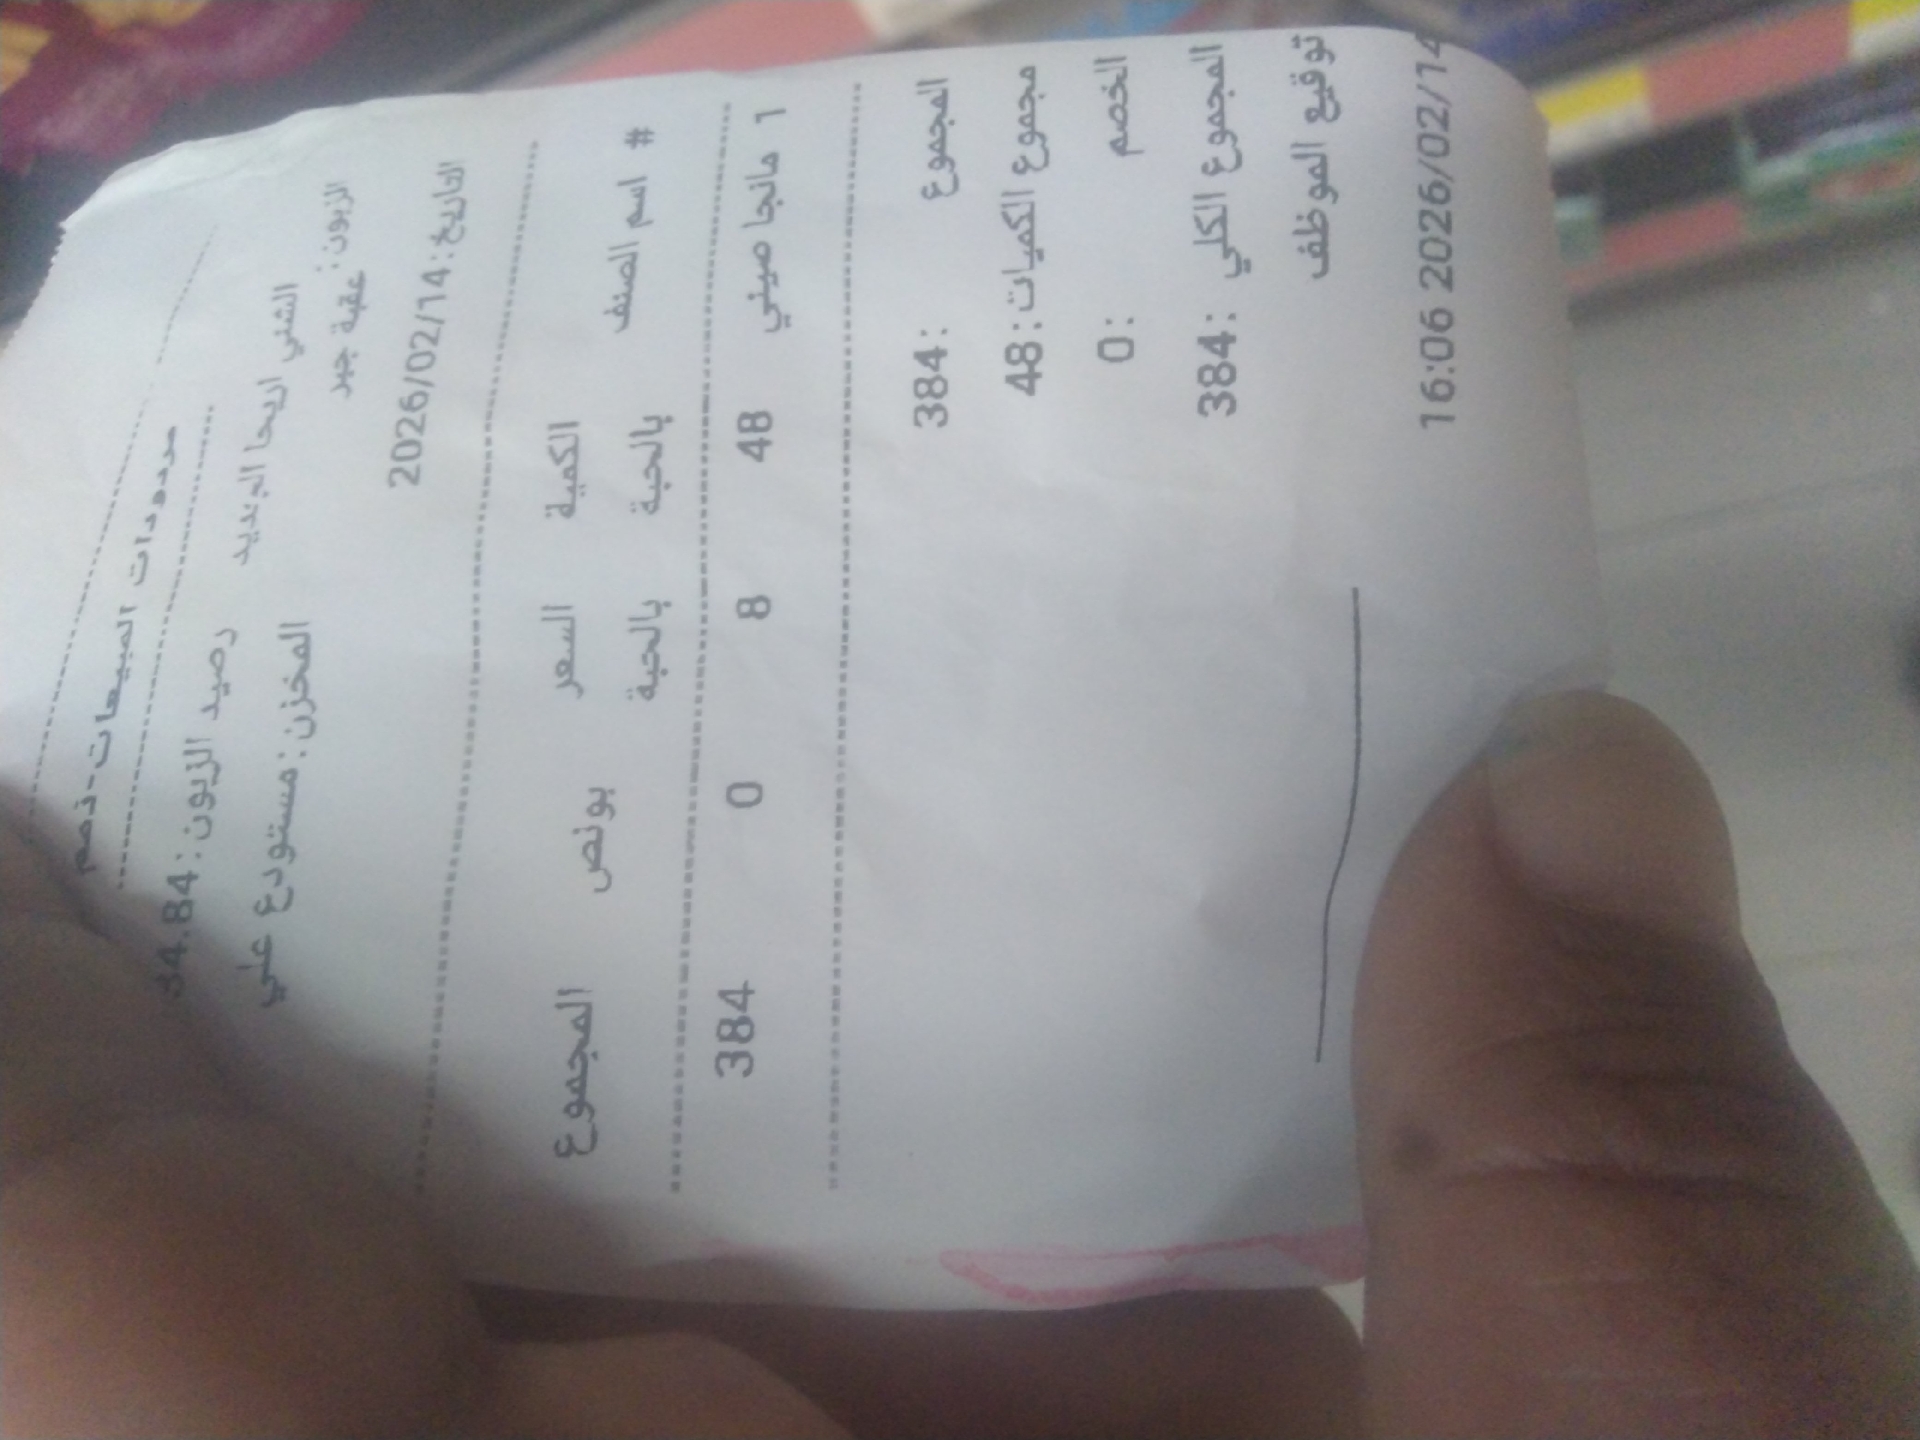 مردودات المبيعات-ذمم
رصيد الزبون: 34.84
الشني اريحا الجديد
المخزن: مستودع علي
الزبون: عقبة جبر
التاريخ: 2026/02/14
# اسم الصنف الكمية بالحبة السعر بالحبة بونص المجموع
1 مانجا صيني 48 8 0 384
المجموع : 384
مجموع الكميات: 48
الخصم : 0
المجموع الكلي : 384
توقيع الموظف
16:06 2026/02/14